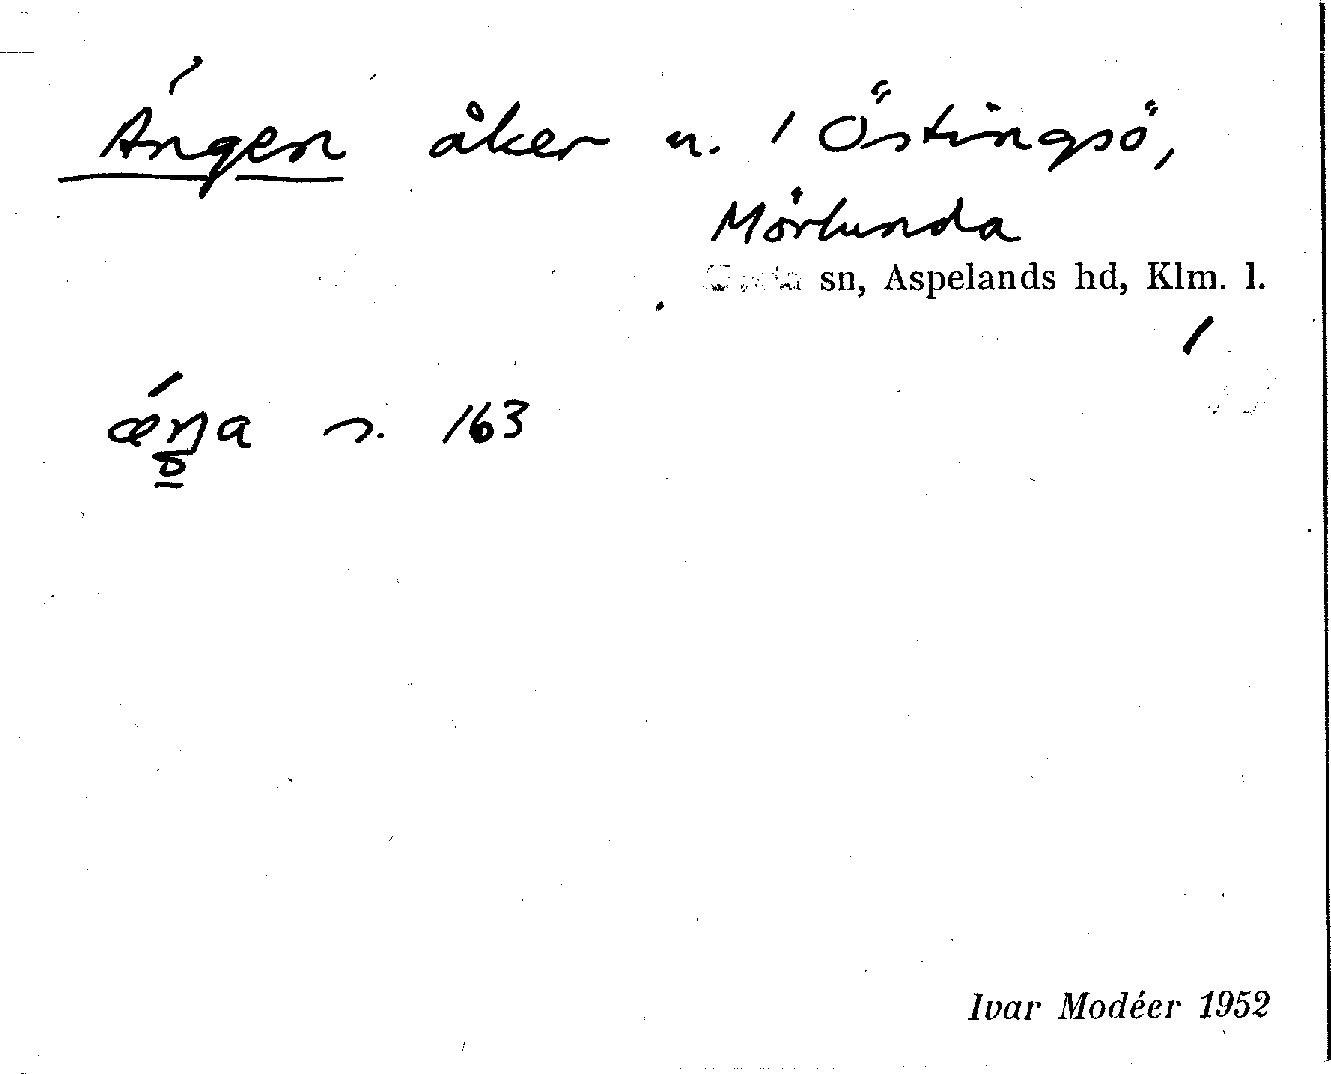 Ängen åker u. 1 Östingsö,
Mörlunda
sn, Aspelands hd, Klm. l.
s. 163
Ivar Modéer 1952